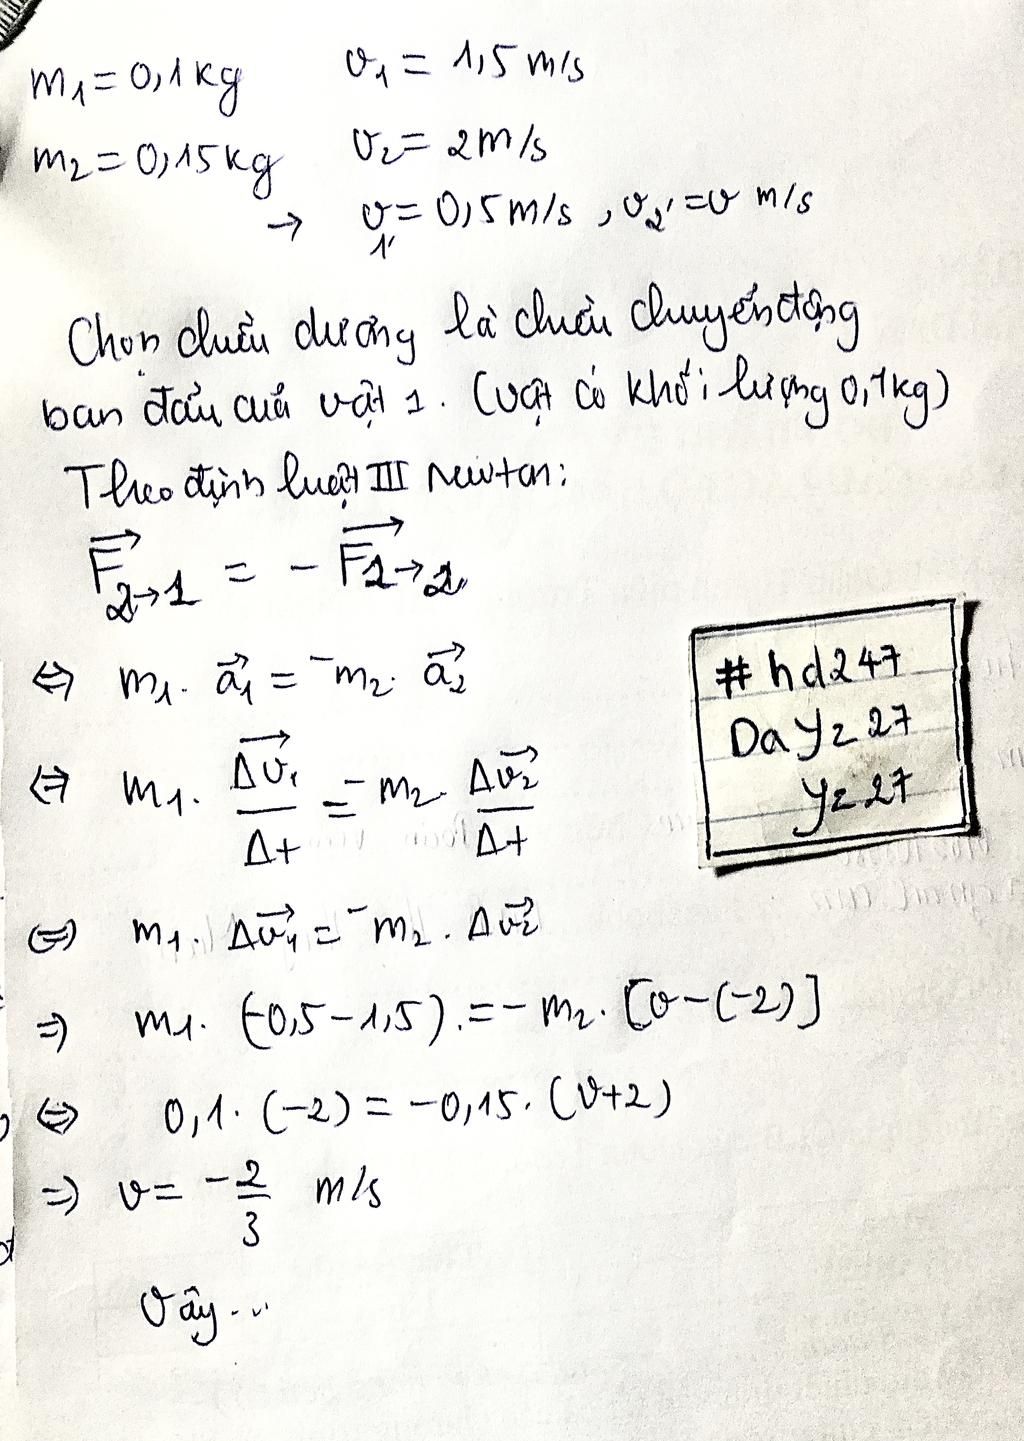 m₁ = 0,1 kg v₁ = 1,5 m/s
m₂ = 0,15 kg v₂ = 2 m/s
→ v₁' = 0,5 m/s , v₂' = v m/s
Chọn chiều dương là chiều chuyển động
ban đầu của vật 1. (vật có khối lượng 0,1kg)
Theo định luật III Newton:
F⃗₂→₁ = - F⃗₁→₂
⇔ m₁. a⃗₁ = -m₂. a⃗₂
⇔ m₁. Δv⃗₁/Δt = -m₂. Δv⃗₂/Δt
⇔ m₁. Δv⃗₁ = -m₂. Δv⃗₂
⇒ m₁. (-0,5-1,5). = - m₂. [v-(-2)]
⇔ 0,1. (-2) = -0,15. (v+2)
⇒ v = -2/3 m/s
Vậy...
#hd247
DaYz27
Yz27